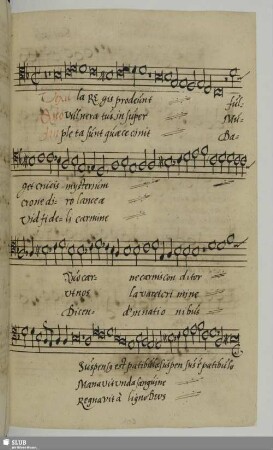 la Regis prodeunt ful-
vulnera tus insuper Mu-
ple ta sunt quæ cecinit Da-
get crucis mysterium
crone diro lancea
vid fideli carmine
Quo car- ne carnis conditor
ut nos lavaret crimine
Dicen- do in natio nibus
Suspensus est patibulo suspen sus e patibulo
Manavit unda sanguine
Regnavit à ligno Deus
SLUB